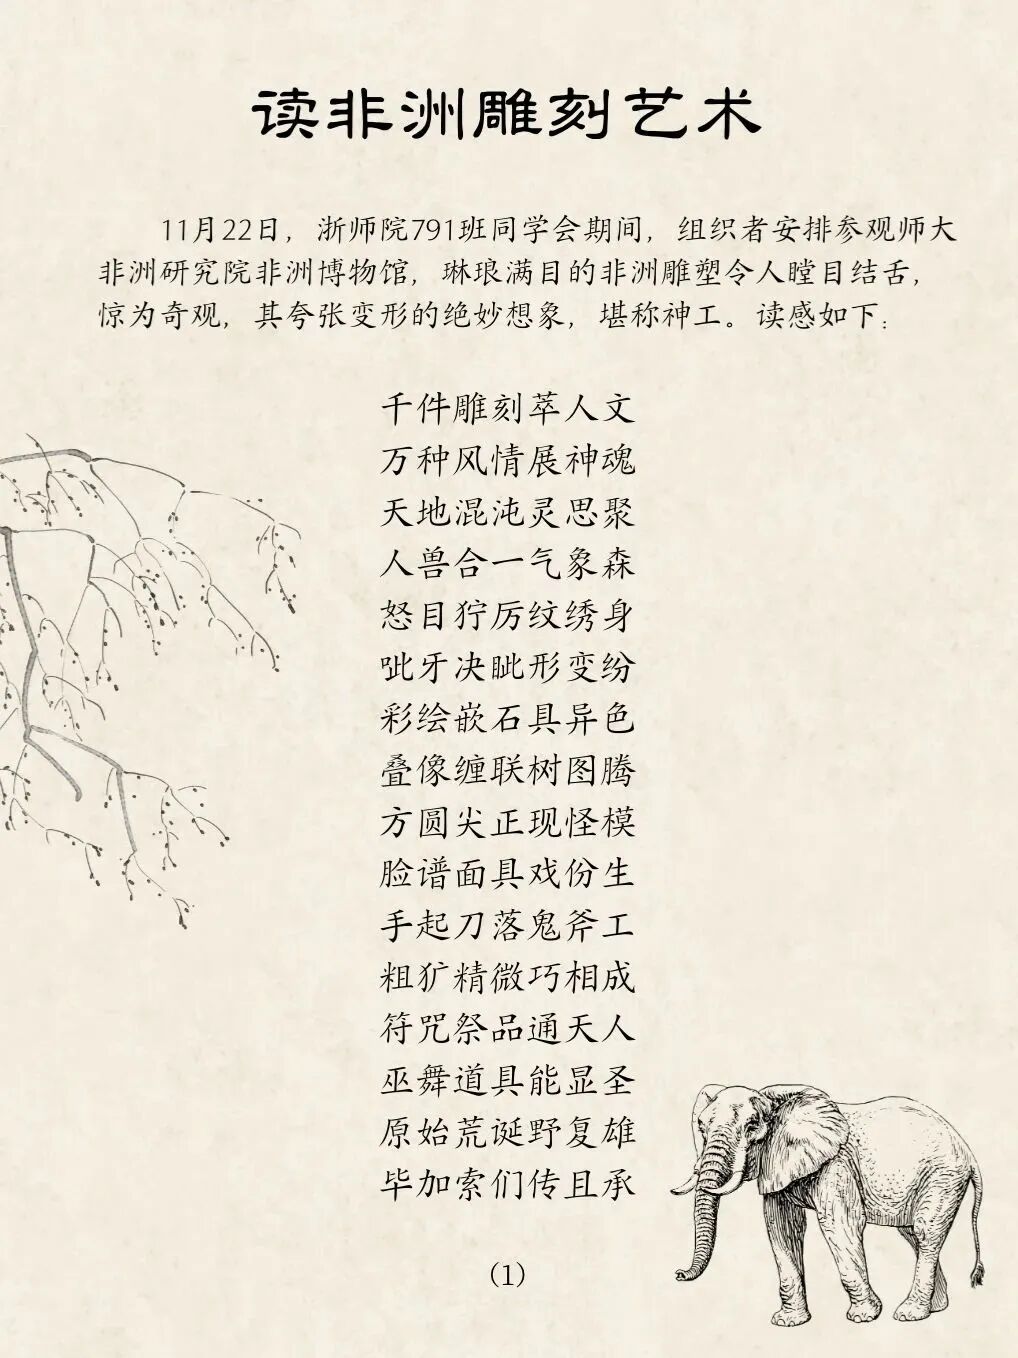 读非洲雕刻艺术
11月22日，浙师院791班同学会期间，组织者安排参观师大
非洲研究院非洲博物馆，琳琅满目的非洲雕塑令人瞠目结舌，
惊为奇观，其夸张变形的绝妙想象，堪称神工。读感如下：
千件雕刻萃人文
万种风情展神魂
天地混沌灵思聚
人兽合一气象森
怒目狞厉纹绣身
呲牙决眦形变纷
彩绘嵌石具异色
叠像缠联树图腾
方圆尖正现怪模
脸谱面具戏份生
手起刀落鬼斧工
粗犷精微巧相成
符咒祭品通天人
巫舞道具能显圣
原始荒诞野复雄
毕加索们传且承
（1）